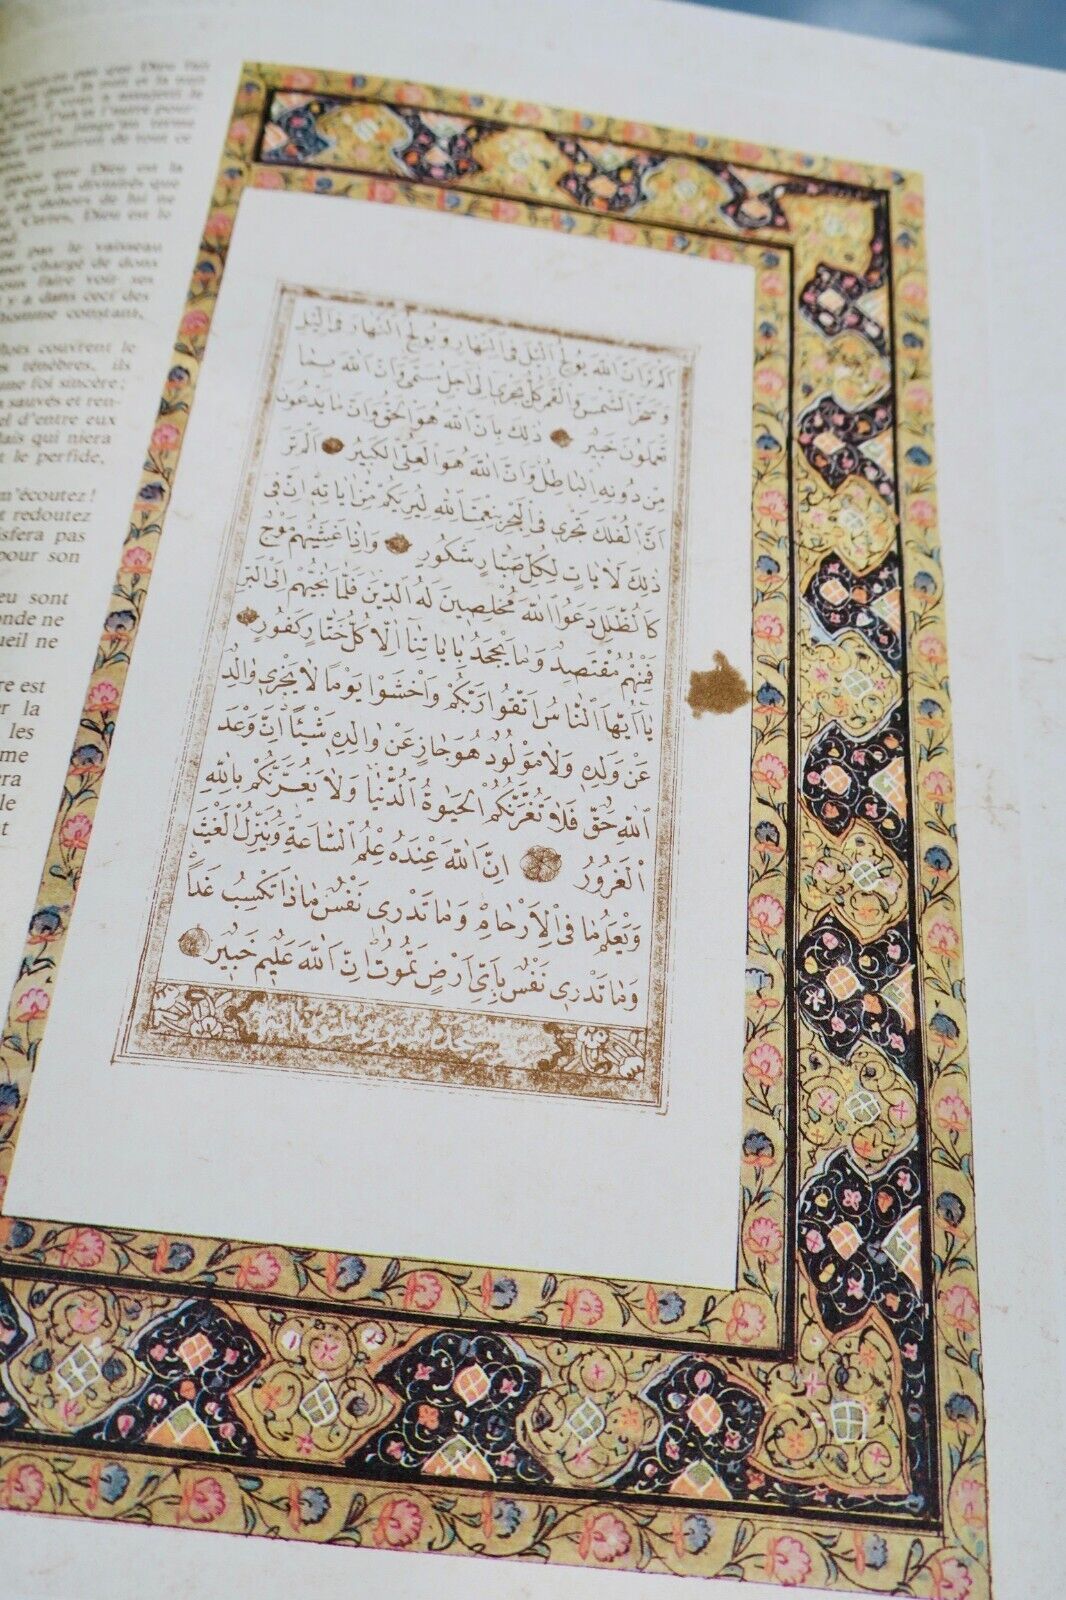 que Dieu fait
la nuit
que Dieu est la
que les divinités que
dehors de lui ne
Certes, Dieu est le
pas le vaisseau
chargé de dons
faire voir ses
y a dans ceci des
homme constant,
flots couvrent le
ténèbres, ils
foi sincère ;
sauvés et ren-
d'entre eux
Mais qui niera
le perfide,
m'écoutez !
redoutez
pas
pour son
sont
ne
ne
est
la
les
me
era
le
t
اَلَمْ تَرَ اَنَّ اللّٰهَ يُولِجُ الَّيْلَ فِى النَّهَارِ وَيُولِجُ النَّهَارَ فِى الَّيْلِ
وَسَخَّرَ الشَّمْسَ وَالْقَمَرَ كُلٌّ يَجْرِى اِلٰى اَجَلٍ مُسَمًّى وَاَنَّ اللّٰهَ بِمَا
تَعْمَلُونَ خَبِيرٌ ذٰلِكَ بِاَنَّ اللّٰهَ هُوَ الْحَقُّ وَاَنَّ مَا يَدْعُونَ
مِنْ دُونِهِ الْبَاطِلُ وَاَنَّ اللّٰهَ هُوَ الْعَلِىُّ الْكَبِيرُ اَلَمْ تَرَ
اَنَّ الْفُلْكَ تَجْرِى فِى الْبَحْرِ بِنِعْمَتِ اللّٰهِ لِيُرِيَكُمْ مِنْ اٰيَاتِهِ اِنَّ فِى
ذٰلِكَ لَاٰيَاتٍ لِكُلِّ صَبَّارٍ شَكُورٍ وَاِذَا غَشِيَهُمْ مَوْجٌ
كَالظُّلَلِ دَعَوُا اللّٰهَ مُخْلِصِينَ لَهُ الدِّينَ فَلَمَّا نَجّٰيهُمْ اِلَى الْبَرِّ
فَمِنْهُمْ مُقْتَصِدٌ وَمَا يَجْحَدُ بِاٰيَاتِنَا اِلَّا كُلُّ خَتَّارٍ كَفُورٍ
يَا اَيُّهَا النَّاسُ اتَّقُوا رَبَّكُمْ وَاخْشَوْا يَوْمًا لَا يَجْزِى وَالِدٌ
عَنْ وَلَدِهِ وَلَا مَوْلُودٌ هُوَ جَازٍ عَنْ وَالِدِهِ شَيْئًا اِنَّ وَعْدَ
اللّٰهِ حَقٌّ فَلَا تَغُرَّنَّكُمُ الْحَيٰوةُ الدُّنْيَا وَلَا يَغُرَّنَّكُمْ بِاللّٰهِ
الْغَرُورُ اِنَّ اللّٰهَ عِنْدَهُ عِلْمُ السَّاعَةِ وَيُنَزِّلُ الْغَيْثَ
وَيَعْلَمُ مَا فِى الْاَرْحَامِ وَمَا تَدْرِى نَفْسٌ مَاذَا تَكْسِبُ غَدًا
وَمَا تَدْرِى نَفْسٌ بِاَىِّ اَرْضٍ تَمُوتُ اِنَّ اللّٰهَ عَلِيمٌ خَبِيرٌ